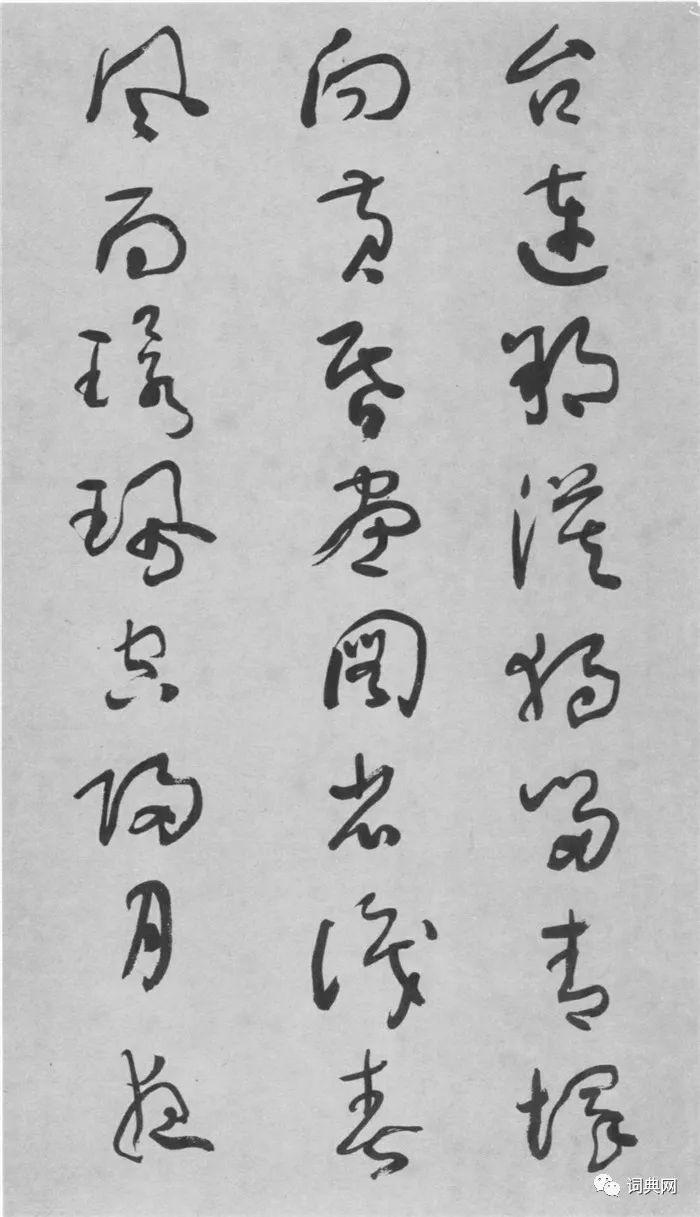 台連朔漠獨留青塚
向黃昏畫圖省識春
風面環珮空歸月夜
词典网